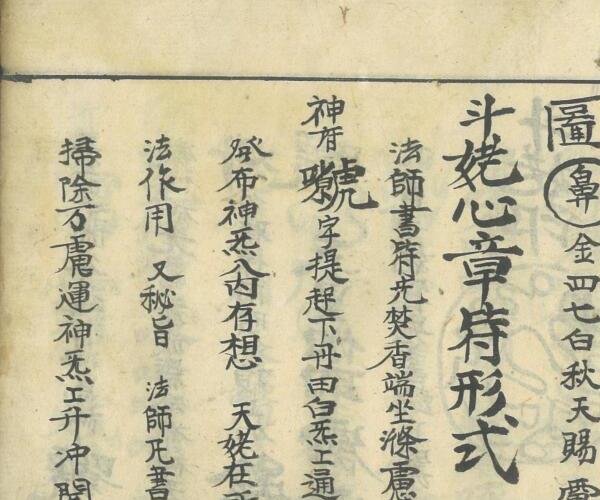 圖 鼻 金四七白秋天賜
斗姥心章符形式
法師書符先焚香端坐滌慮
神府 字提起下丹田白炁上通
發布神炁八内存想 天姥在
法作用 又秘旨 法師凡書
掃除万慮運神炁上升冲開